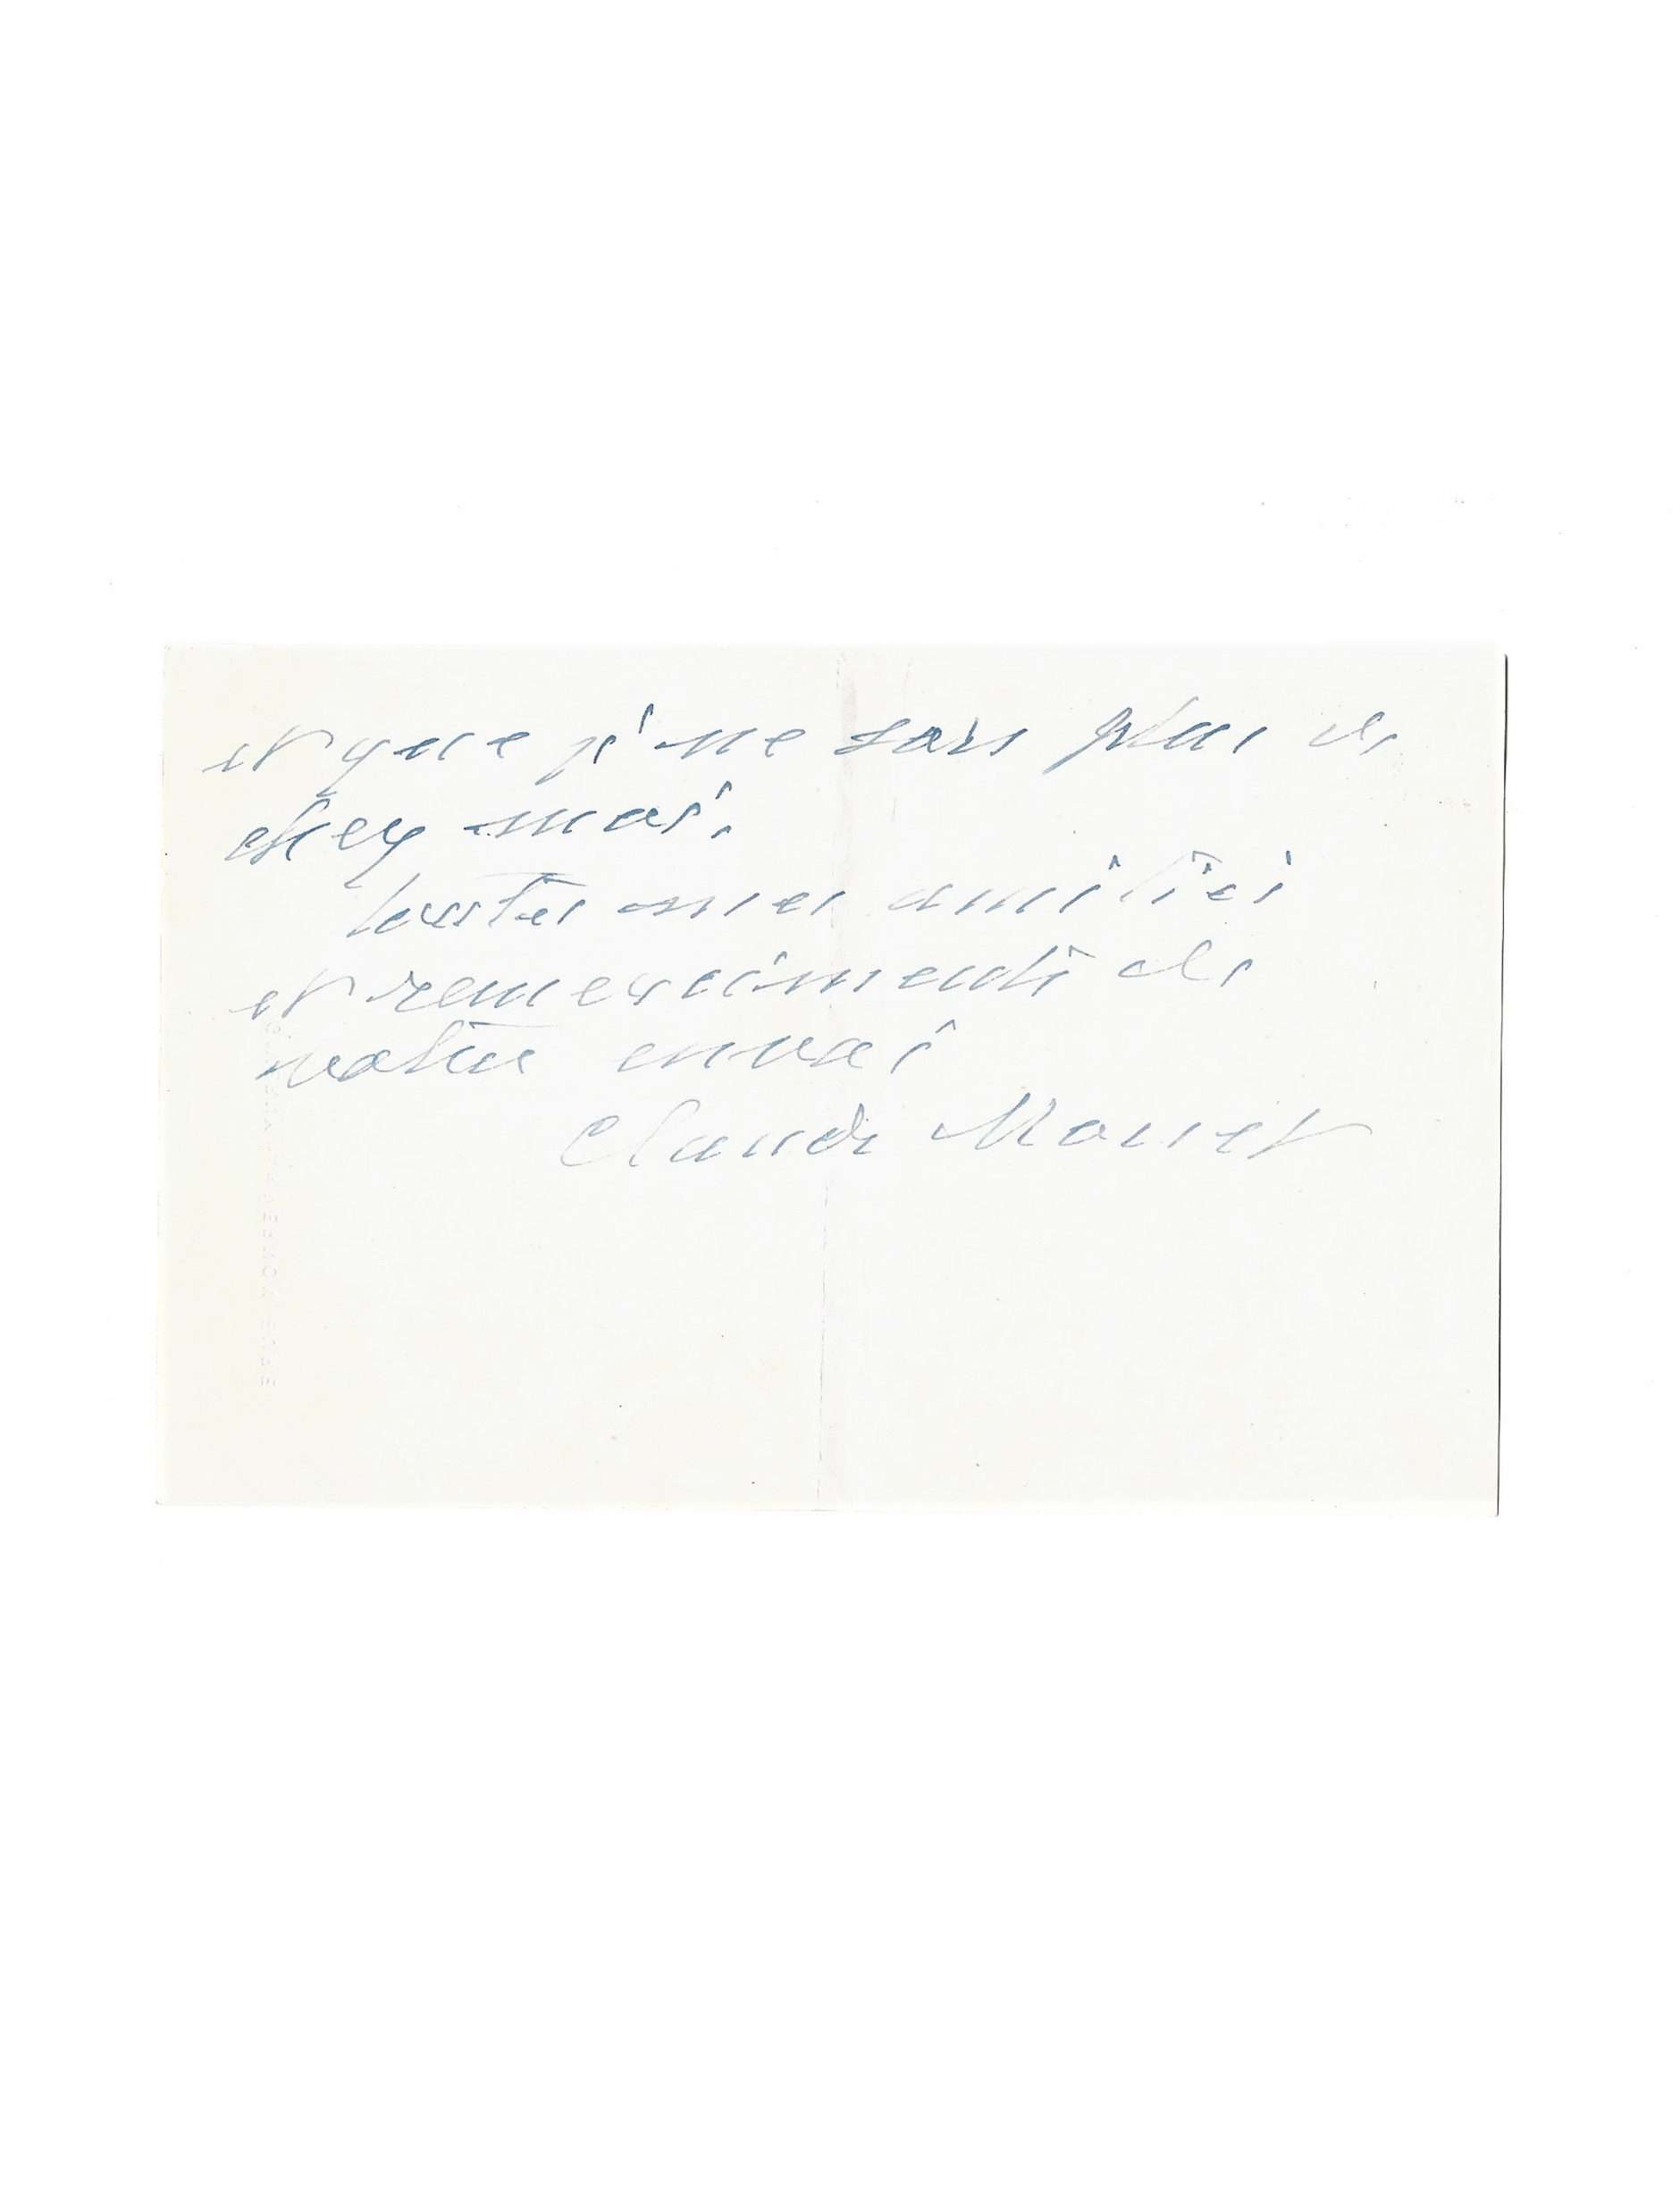 et que je ne sors plus de
chez moi.
toutes mes amitiés
et remerciements de
votre envoi
Claude Monet